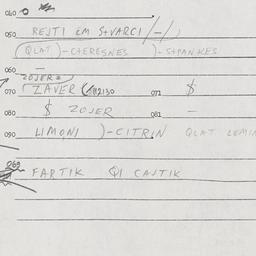 040
050 REJTI ČM STVARCI /-/
(QLAT)-CTERESNES )-STANKES
060 —
ZOJER
070 ZAVER 071 $
080 $ ZOJER 081 —
090 LIMONI )-CITRIN QLAT LEMIN
269
FARTIK QI CAJTIK